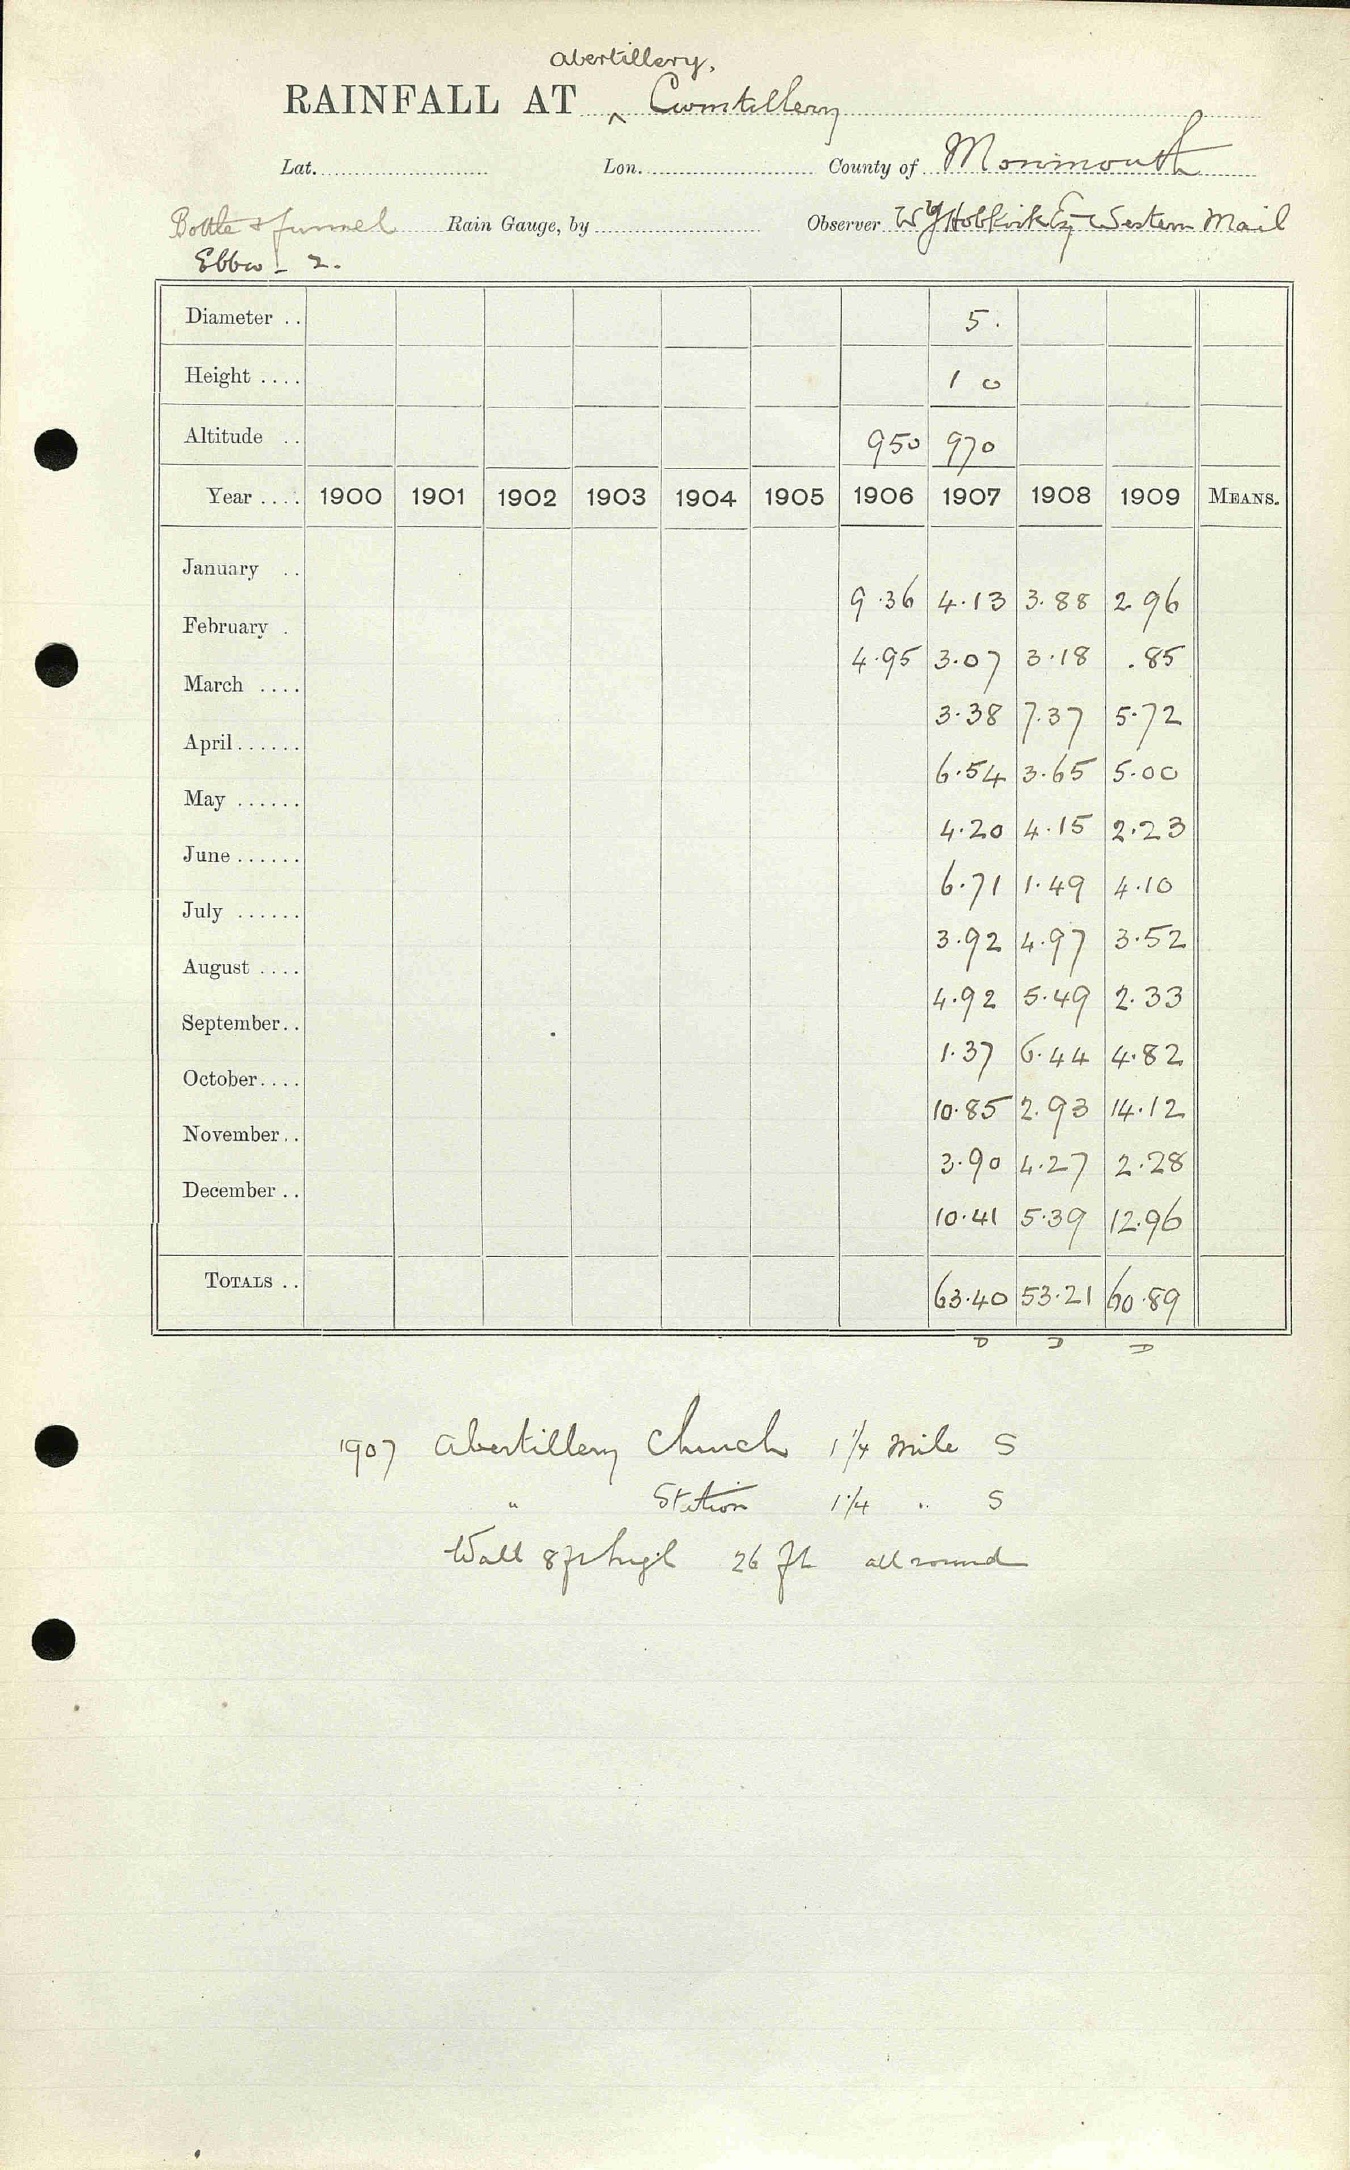 Abertillery,
RAINFALL AT ^ Cwmtillery
Lat. Lon. County of Monmouth
Bottle & funnel Rain Gauge, by Observer W J Hobkirk Esq Western Mail
Ebbw - 2.
Diameter .. 5.
Height .... 1 0
Altitude .. 950 970
Year .... 1900 1901 1902 1903 1904 1905 1906 1907 1908 1909 MEANS.
January ..
9.36 4.13 3.88 2.96
February .
4.95 3.07 3.18 .85
March ....
3.38 7.37 5.72
April ......
6.54 3.65 5.00
May ......
4.20 4.15 2.23
June ......
6.71 1.49 4.10
July ......
3.92 4.97 3.52
August ....
4.92 5.49 2.33
September ..
1.37 6.44 4.82
October ....
10.85 2.93 14.12
November ..
3.90 4.27 2.28
December ..
10.41 5.39 12.96
TOTALS .. 63.40 53.21 60.89
D D D
1907 Abertillery Church 1 1/4 mile S
" Station 1 1/4 " S
Wall 8 ft high 26 ft all round